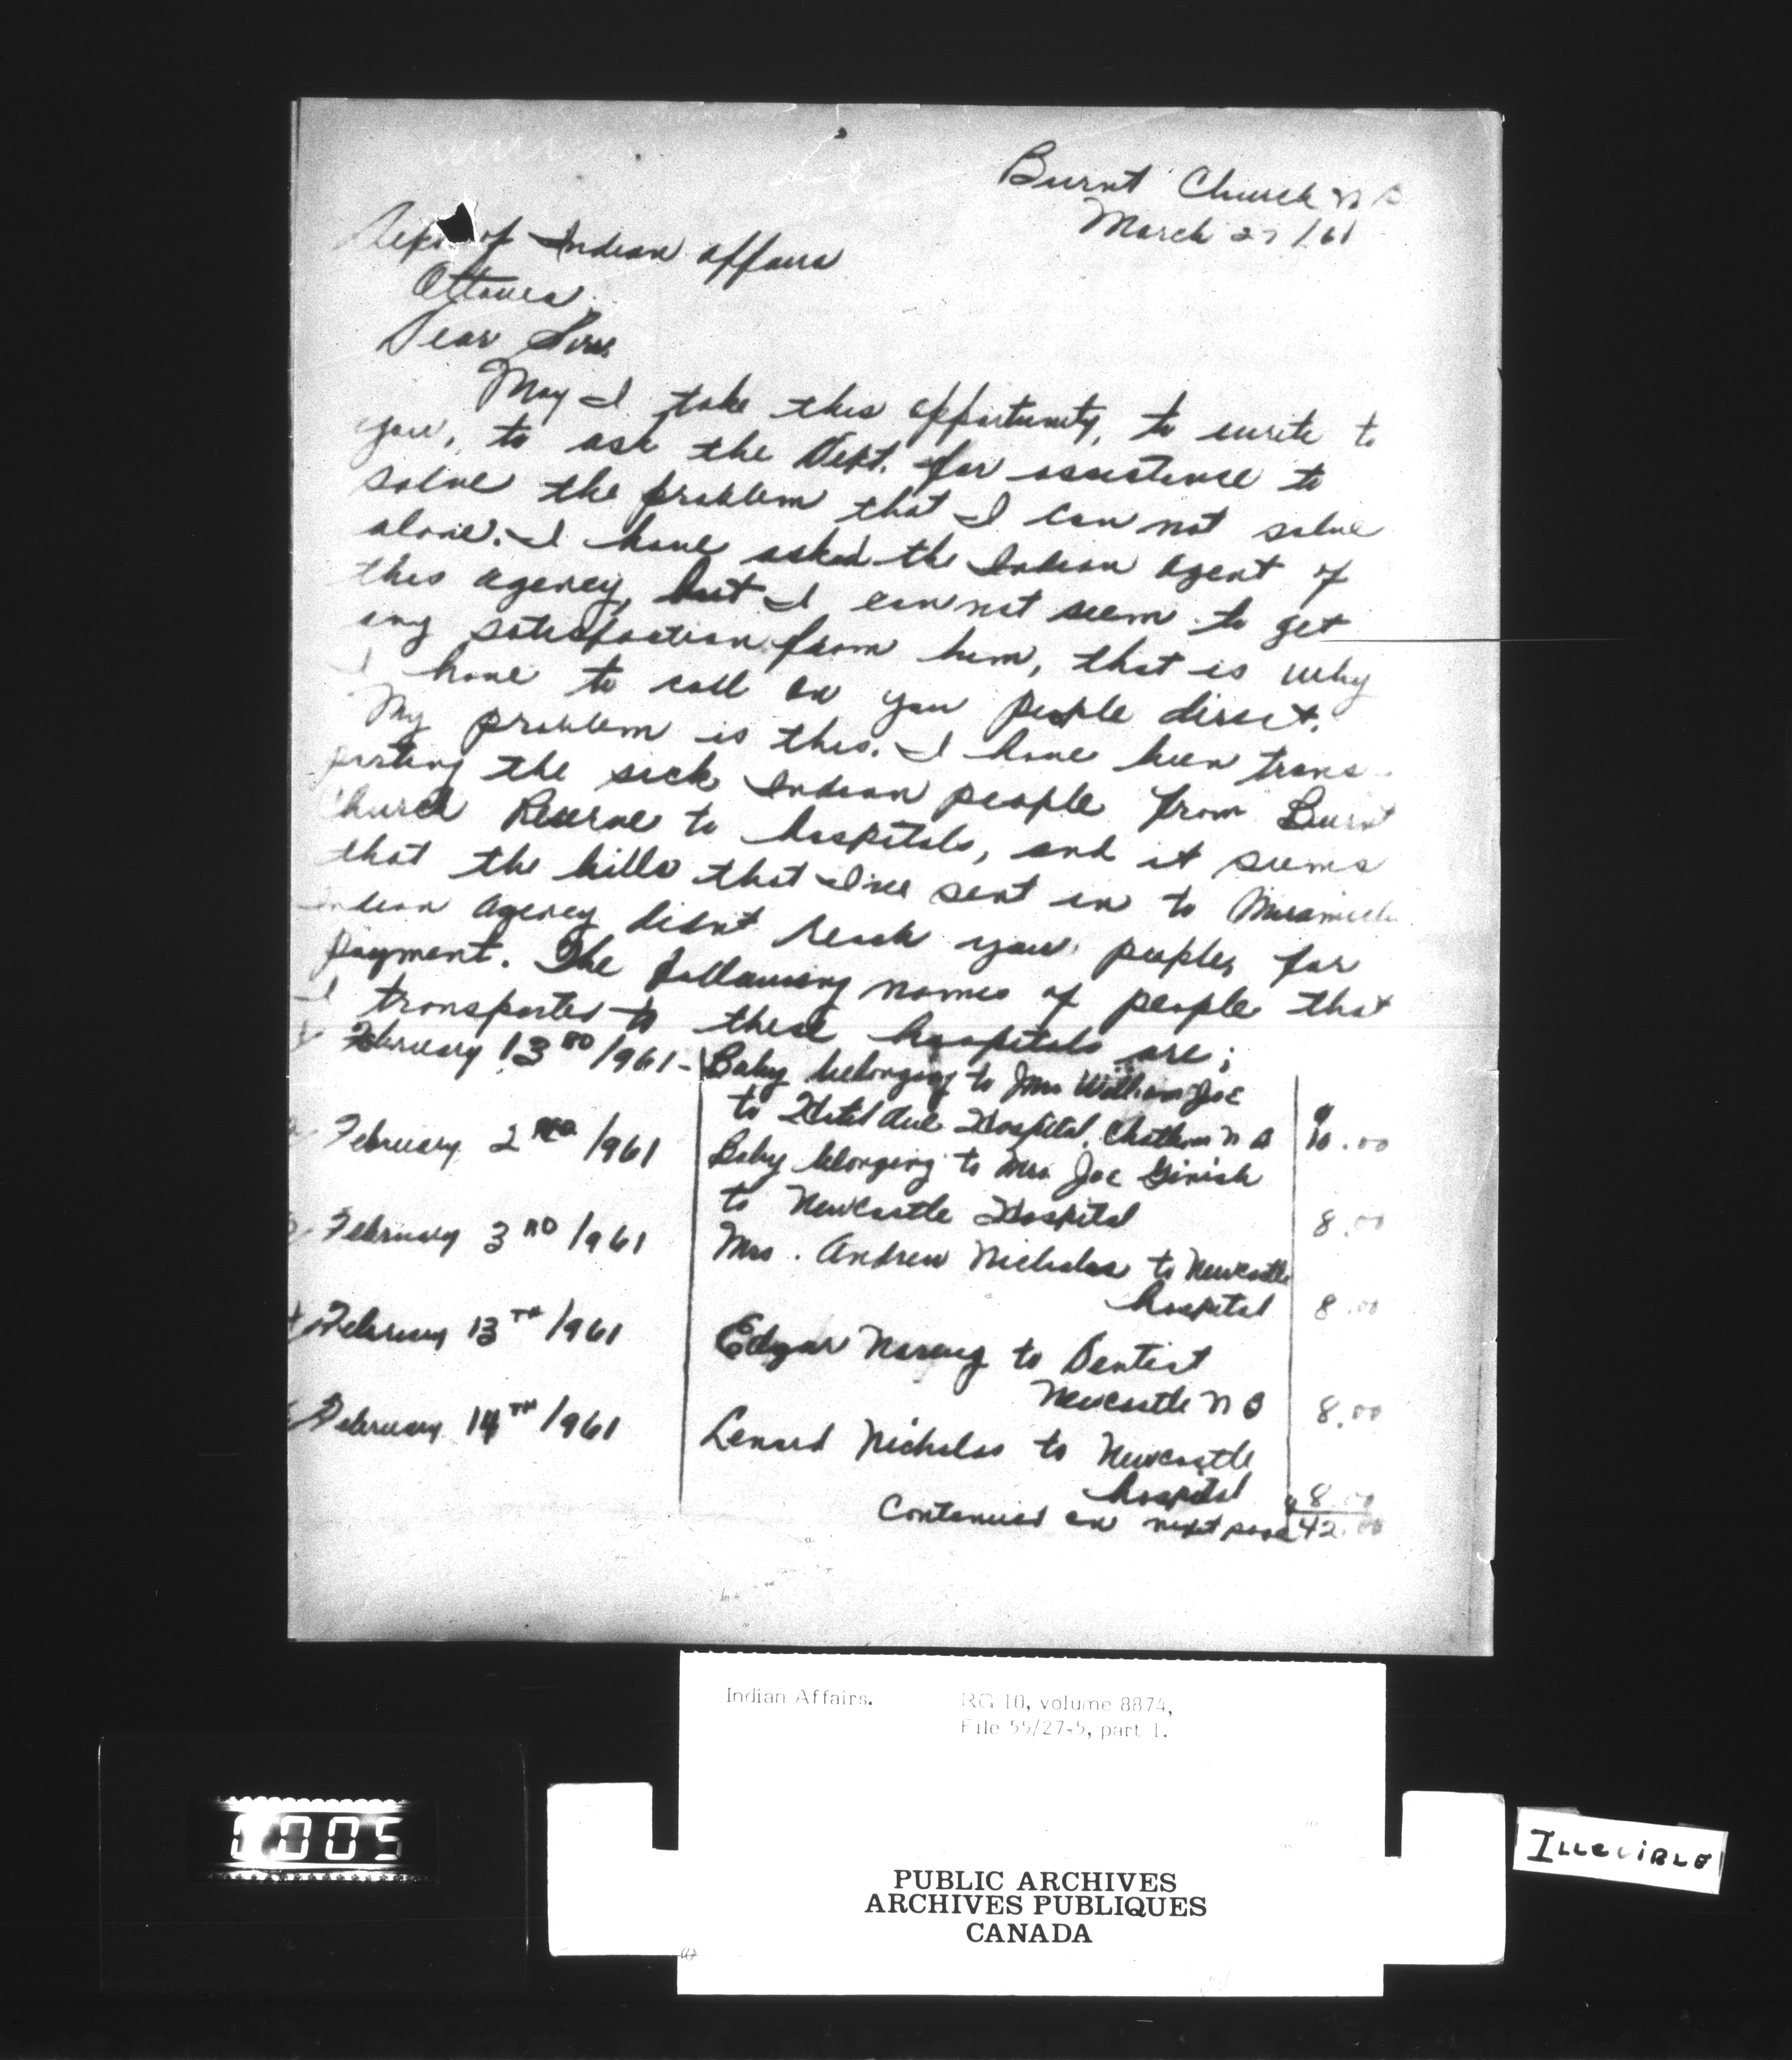 Burnt Church N B
March 27/61
Dept of Indian affairs
Ottawa
Dear Sirs
May I take this opportunity, to write to
you, to ask the Dept. for assistance to
solve the problem that I can not solve
alone. I have asked the Indian agent of
this agency, but I can not seem to get
any satisfaction from him, that is why
I have to call on you people direct.
My problem is this. I have been trans-
porting the sick Indian people from Burnt
Church Reserve to hospitals, and it seems
that the bills that I've sent in to Miramichi
Indian agency didnt reach you people, for
payment. The following names of people that
I transported to these hospitals are;
February 13 RD /1961 - Baby belonging to Mrs William Joe
to Hotel due Hospital, Chatham N B $10.00
February 2 ND /1961 Baby belonging to Mrs Joe Ginish
to Newcastle Hospital 8.00
February 3 RD /1961 Mrs. Andrew Nicholas to Newcastle
hospital 8.00
February 13 TH /1961 Edgar to Dentist
Newcastle N B 8.00
February 14 TH /1961 Lenard Nicholas to Newcastle
hospital 8.00
Contenued on next page $42.00
Indian Affairs. RG 10, volume 8874,
File 55/27-5, part 1.
1005
PUBLIC ARCHIVES
ARCHIVES PUBLIQUES
CANADA
ILLEGIBLE